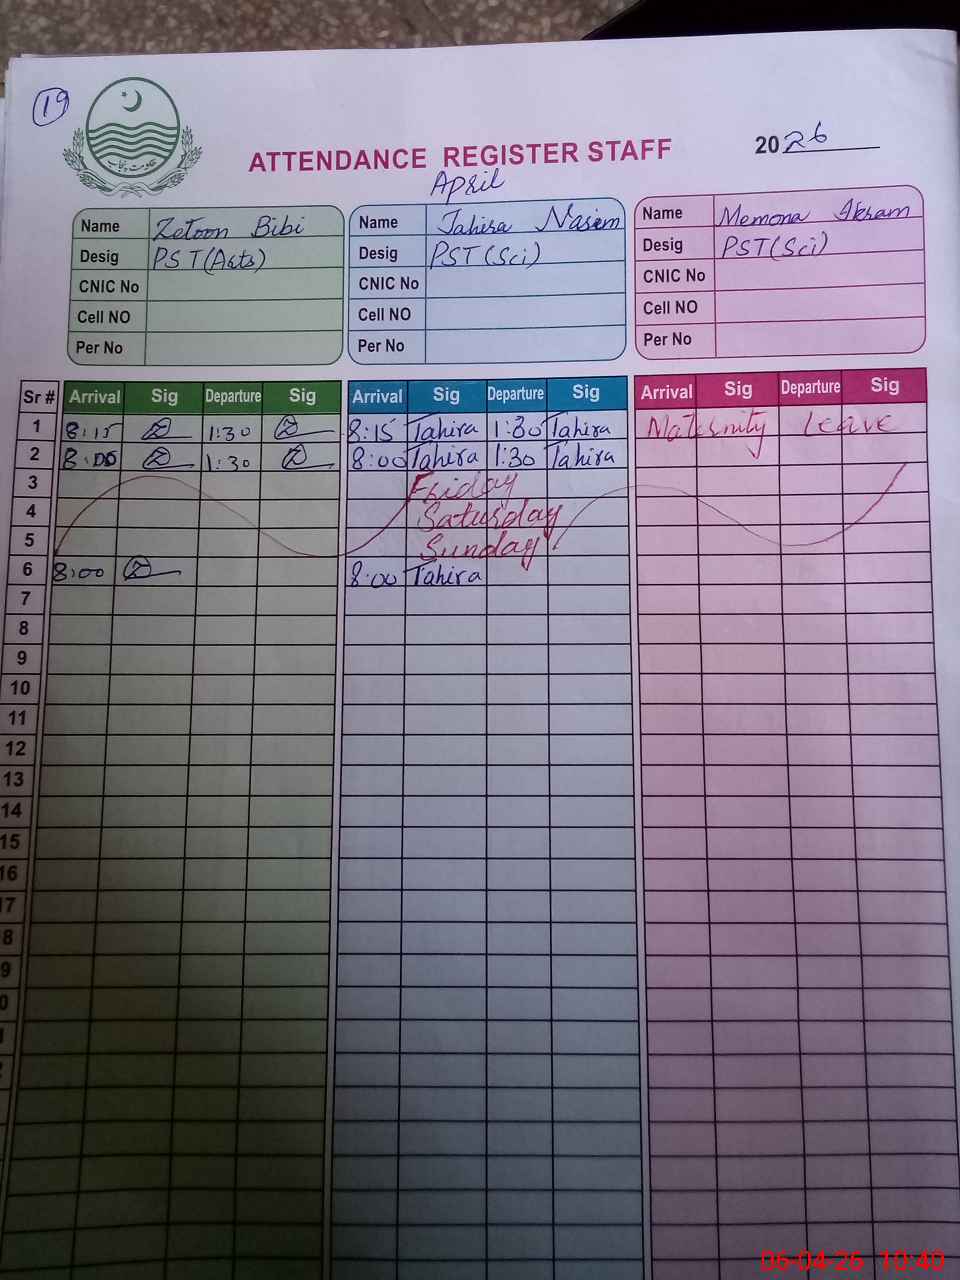 19
حکومت پنجاب
ATTENDANCE REGISTER STAFF
2026
April
Name Zetoon Bibi
Desig PST(Arts)
CNIC No
Cell NO
Per No
Name Tahira Nasim
Desig PST(Sci)
CNIC No
Cell NO
Per No
Name Memona Ikram
Desig PST(Sci)
CNIC No
Cell NO
Per No
Sr # Arrival Sig Departure Sig Arrival Sig Departure Sig Arrival Sig Departure Sig
1 8:15 1:30 8:15 Tahira 1:30 Tahira Maternity Leave
2 8:00 1:30 8:00 Tahira 1:30 Tahira
3 Friday
4 Saturday
5 Sunday
6 8:00 8:00 Tahira
7
8
9
10
11
12
13
14
15
16
17
8
9
0
06-04-26 10:40